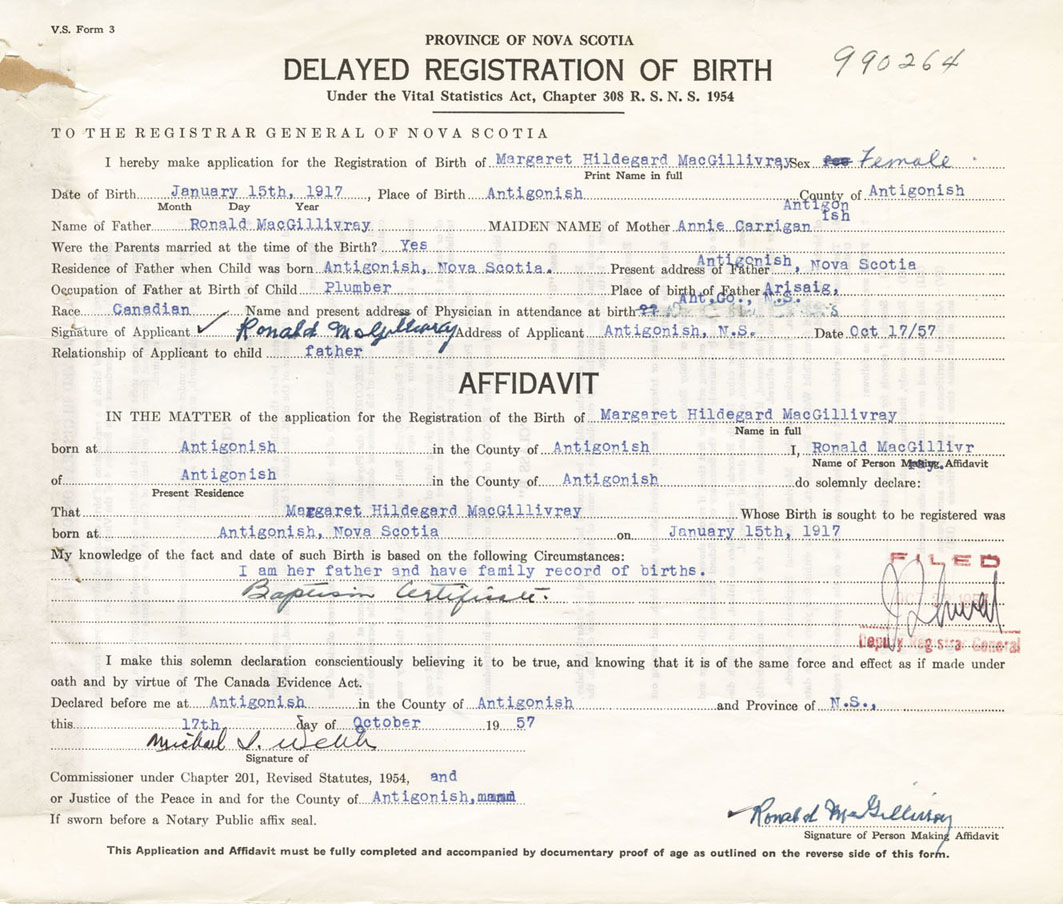 V.S. Form 3
PROVINCE OF NOVA SCOTIA
990264
DELAYED REGISTRATION OF BIRTH
Under the Vital Statistics Act, Chapter 308 R. S. N. S. 1954
TO THE REGISTRAR GENERAL OF NOVA SCOTIA
I hereby make application for the Registration of Birth of Margaret Hildegard MacGillivray Sex Female
Print Name in full
Date of Birth January 15th, 1917, Place of Birth Antigonish County of Antigonish
Month Day Year
Antigon
ish
Name of Father Ronald MacGillivray MAIDEN NAME of Mother Annie Carrigan
Were the Parents married at the time of the Birth? Yes
Residence of Father when Child was born Antigonish, Nova Scotia. Present address of Father Antigonish, Nova Scotia
Occupation of Father at Birth of Child Plumber Place of birth of Father Arisaig,
Ant.Co., N.S.
Race Canadian Name and present address of Physician in attendance at birth
Signature of Applicant ✓ Ronald McGillivray Address of Applicant Antigonish, N.S. Date Oct 17/57
Relationship of Applicant to child father
AFFIDAVIT
IN THE MATTER of the application for the Registration of the Birth of Margaret Hildegard MacGillivray
Name in full
born at Antigonish in the County of Antigonish I, Ronald MacGillivr
Name of Person Making Affidavit
ray.
of Antigonish in the County of Antigonish do solemnly declare:
Present Residence
That Margaret Hildegard MacGillivray Whose Birth is sought to be registered was
born at Antigonish, Nova Scotia on January 15th, 1917
My knowledge of the fact and date of such Birth is based on the following Circumstances:
I am her father and have family record of births.
Baptism Certificate.
FILED
Deputy Registrar General
I make this solemn declaration conscientiously believing it to be true, and knowing that it is of the same force and effect as if made under
oath and by virtue of The Canada Evidence Act.
Declared before me at Antigonish in the County of Antigonish and Province of N.S.,
this 17th day of October 19 57
Michael I. Webb
Signature of
Commissioner under Chapter 201, Revised Statutes, 1954, and
or Justice of the Peace in and for the County of Antigonish,
If sworn before a Notary Public affix seal.
✓ Ronald McGillivray
Signature of Person Making Affidavit
This Application and Affidavit must be fully completed and accompanied by documentary proof of age as outlined on the reverse side of this form.